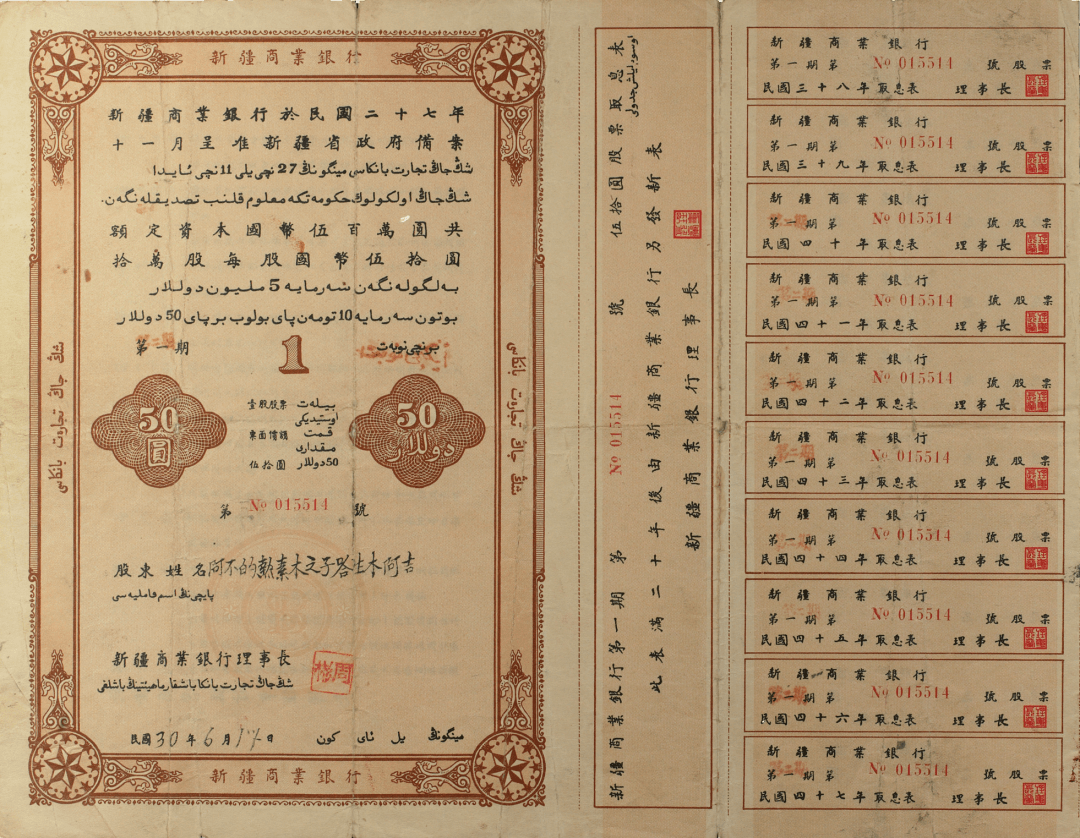 新疆商業銀行
新疆商業銀行於民國二十七年
十一月呈准新疆省政府備案
شىڭ جاڭ تجارت بانكاسى مينگونىڭ 27 نچى يلى 11 نچى ئايدا
شىڭ جاڭ اولكولوك حكومه تكه معلوم قلنب تصديقله نگەن.
額定資本國幣伍百萬圓共
拾萬股每股國幣伍拾圓
به لگوله نگەن سه رمايه 5 مليون دوللار
بوتون سه رمايه 10 تومەن پاى بولوب بر پاى 50 دوللار
第一期
1
برنچى نوبەت
شىڭ جاڭ تجارت بانكاسى
شىڭ جاڭ تجارت بانكاسى
50
圓
壹股股票
票面價額
伍拾圓
بيلەت
اوستيدىكى
قمت
مقدارى
50 دوللار
50
دوللار
第 № 015514 號
股東姓名
پايچى نىڭ اسم فاميليه سى
新疆商業銀行理事長
شىڭ جاڭ تجارت بانكا باشقارما هيئتينىڭ باشلغى
民國 30 年 6 月 17 日
مينگونىڭ يل ئاى كون
新疆商業銀行
新疆商業銀行第一期第 № 015514 號伍拾圓股票取息表
此表滿二十年後由新疆商業銀行另發新表
新疆商業銀行理事長
新疆商業銀行
第一期第 № 015514 號股票
民國三十八年取息表 理事長
新疆商業銀行
第一期第 № 015514 號股票
民國三十九年取息表 理事長
新疆商業銀行
第一期第 № 015514 號股票
民國四十年取息表 理事長
新疆商業銀行
第一期第 № 015514 號股票
民國四十一年取息表 理事長
新疆商業銀行
第一期第 № 015514 號股票
民國四十二年取息表 理事長
新疆商業銀行
第一期第 № 015514 號股票
民國四十三年取息表 理事長
新疆商業銀行
第一期第 № 015514 號股票
民國四十四年取息表 理事長
新疆商業銀行
第一期第 № 015514 號股票
民國四十五年取息表 理事長
新疆商業銀行
第一期第 № 015514 號股票
民國四十六年取息表 理事長
新疆商業銀行
第一期第 № 015514 號股票
民國四十七年取息表 理事長